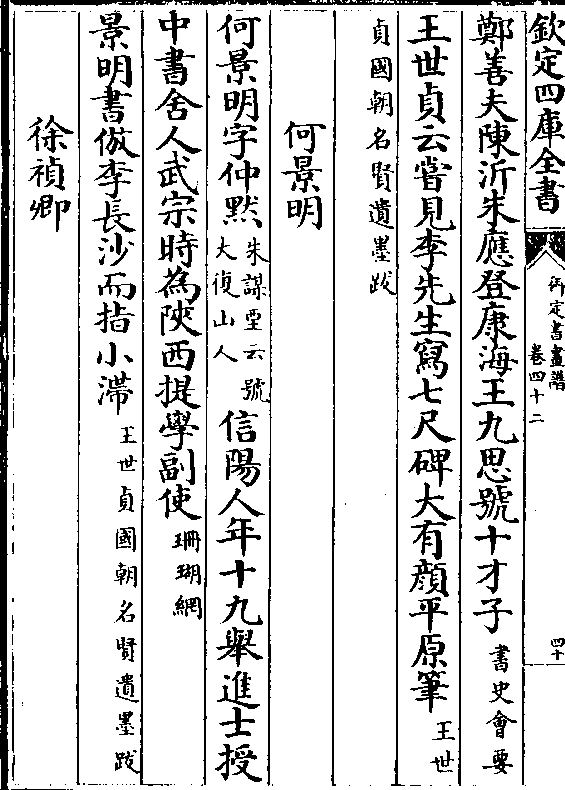 欽定四庫全書
御定書畫譜
卷四十二
四十
鄭善夫陳沂朱應登康海王九思號十才子書史會要
王世貞云嘗見李先生寫七尺碑大有顔平原筆王世
貞國朝名賢遺墨跋
何景明
何景明字仲黙朱謀垔云號大復山人信陽人年十九舉進士授
中書舍人武宗時為陜西提學副使珊瑚網
景明書倣李長沙而指小滯王世貞國朝名賢遺墨跋
徐禎卿